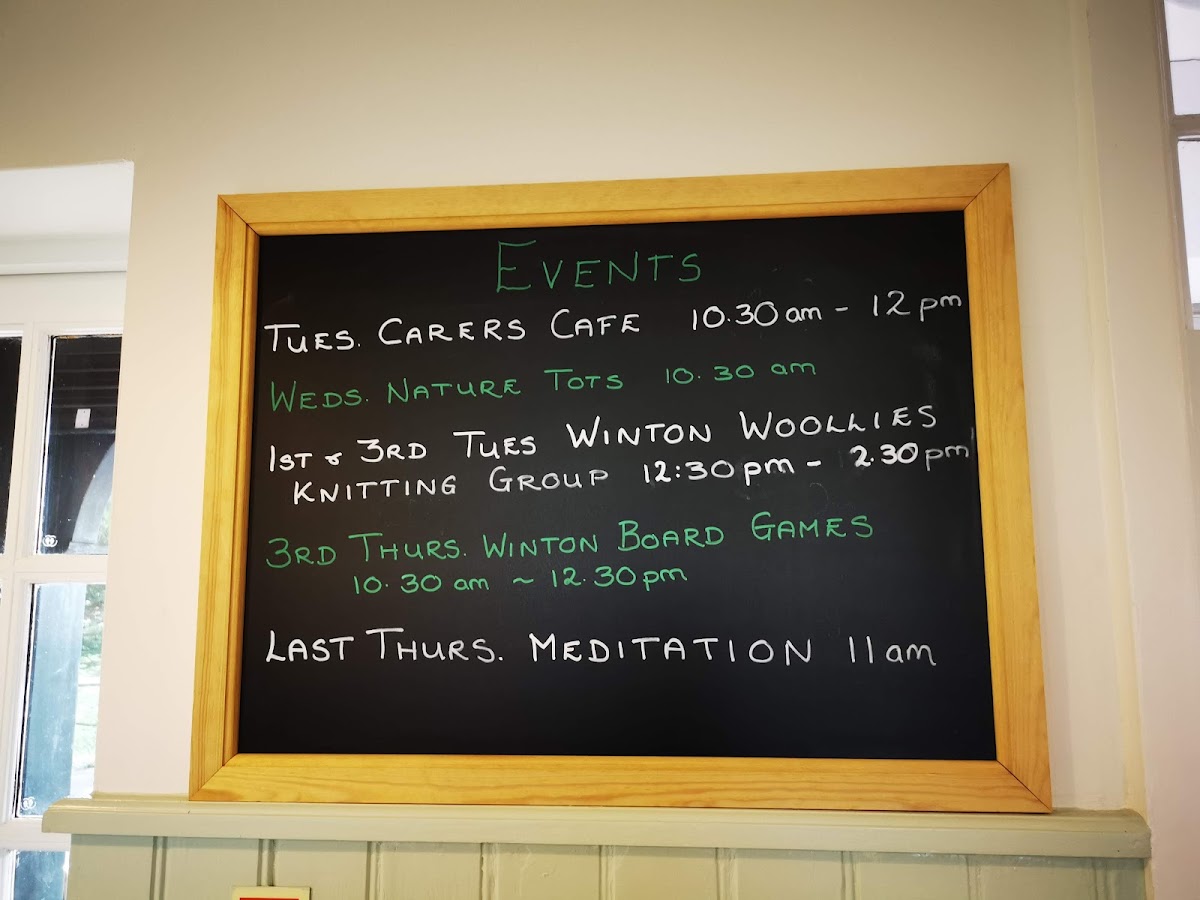 EVENTS
TUES. CARERS CAFE 10.30 am - 12 pm
WEDS. NATURE TOTS 10.30 am
1ST & 3RD TUES WINTON WOOLLIES
KNITTING GROUP 12:30 pm - 2.30 pm
3RD THURS. WINTON BOARD GAMES
10.30 am ~ 12.30 pm
LAST THURS. MEDITATION 11 am